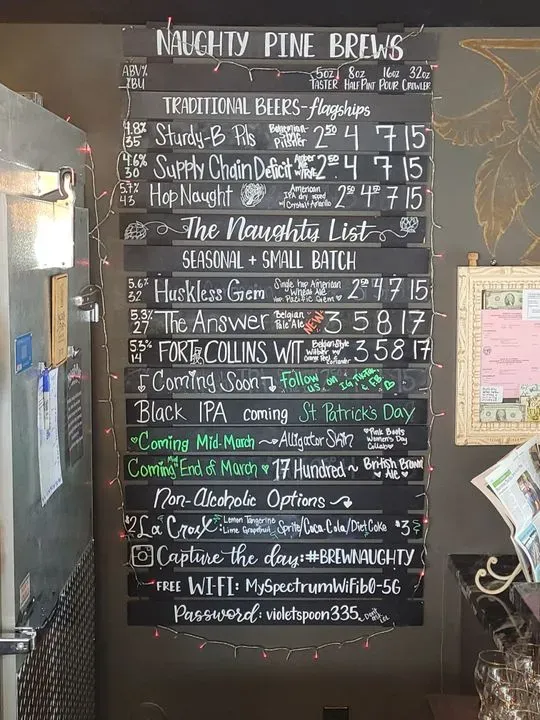 NAUGHTY PINE BREWS
ABV% 5oz 8oz 16oz 32oz
IBU TASTER HALF PINT POUR CROWLER
TRADITIONAL BEERS-flagships
4.8% 35 Sturdy-B Pils Bohemian- Pilsner 2.50 4 7 15
4.6% 30 Supply Chain Deficit Amber Ale w/RYE 2.50 4 7 15
5.7% 43 Hop Naught American IPA dry hopped w/Crystal & Amarillo 2.50 4.50 7 15
The Naughty List
SEASONAL + SMALL BATCH
5.6% 32 Huskless Gem Single hop American Wheat Ale Hop: Pacific Gem 2.50 4 7 15
5.3% 27 The Answer Belgian Pale Ale NEW 3 5 8 17
5.3% 14 FORT COLLINS WIT Belgian Style Witbier w/ Orange Peel Coriander 3 5 8 17
Coming Soon Follow us on IG, TikTok & FB
Black IPA coming St Patrick's Day
Coming Mid-March Alligator Skin Pink Boots Women's Day Collab
Coming Mid End of March 17 Hundred ~ British Brown Ale
Non-Alcoholic Options
$2 La Croix: Lemon Tangerine Lime Grapefruit Sprite/Coca Cola/Diet Coke $3
Capture the day: #BREWNAUGHTY
FREE WI-FI: MySpectrumWiFib0-5G
Password: violetspoon335